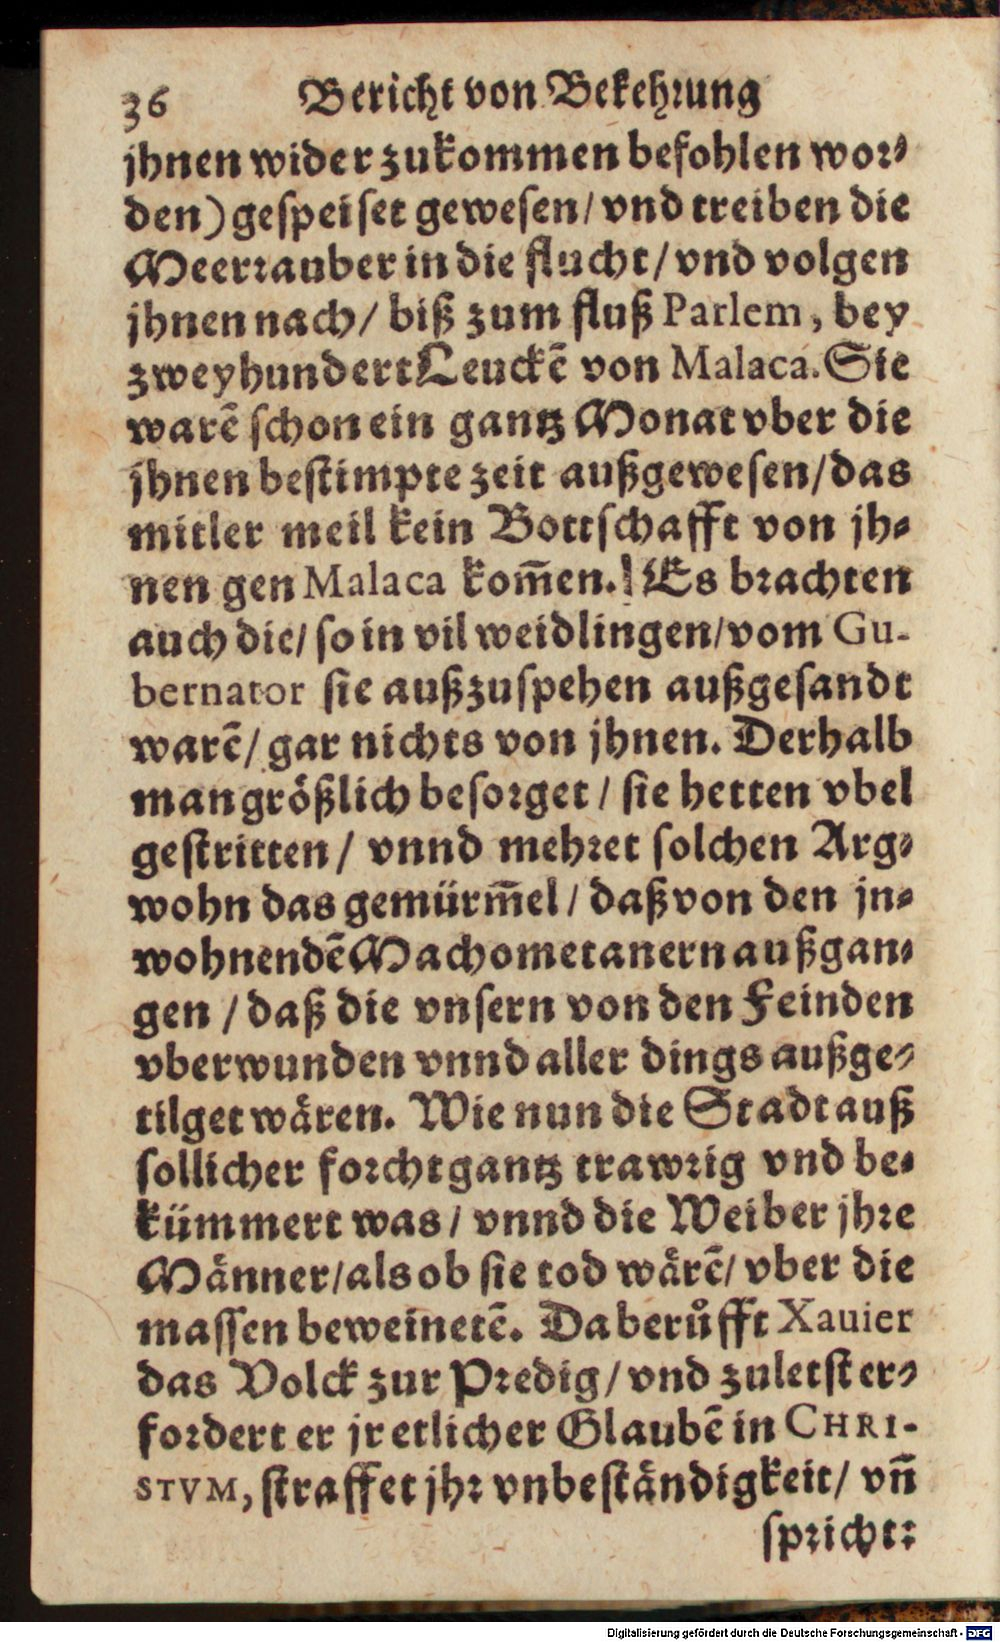 36 Bericht von Bekehrung
jhnen wider zukommen befohlen wor⸗
den) gespeiset gewesen / vnd treiben die
Meerrauber in die flucht / vnd volgen
jhnen nach / biß zum fluß Parlem, bey
zweyhundert Leuckẽ von Malaca. Sie
warẽ schon ein gantz Monat vber die
jhnen bestimpte zeit außgewesen / das
mitler meil kein Bottschafft von jh⸗
nen gen Malaca kom̃en. Es brachten
auch die / so in vil weidlingen / vom Gu-
bernator sie außzuspehen außgesandt
warẽ / gar nichts von jhnen. Derhalb
man größlich besorget / sie hetten vbel
gestritten / vnnd mehret solchen Arg⸗
wohn das gemürm̃el / daß von den jn⸗
wohnendẽ Machometanern außgan⸗
gen / daß die vnsern von den Feinden
vberwunden vnnd aller dings außge⸗
tilget wåren. Wie nun die Stadt auß
sollicher forcht gantz trawrig vnd be⸗
kümmert was / vnnd die Weiber jhre
Männer / als ob sie tod wårẽ / vber die
massen beweinetẽ. Da berůfft Xauier
das Volck zur Predig / vnd zuletst er⸗
fordert er jr etlicher Glaubẽ in CHRI-
STVM, straffet jhr vnbeständigkeit / vñ
spricht:
Digitalisierung gefördert durch die Deutsche Forschungsgemeinschaft - DFG